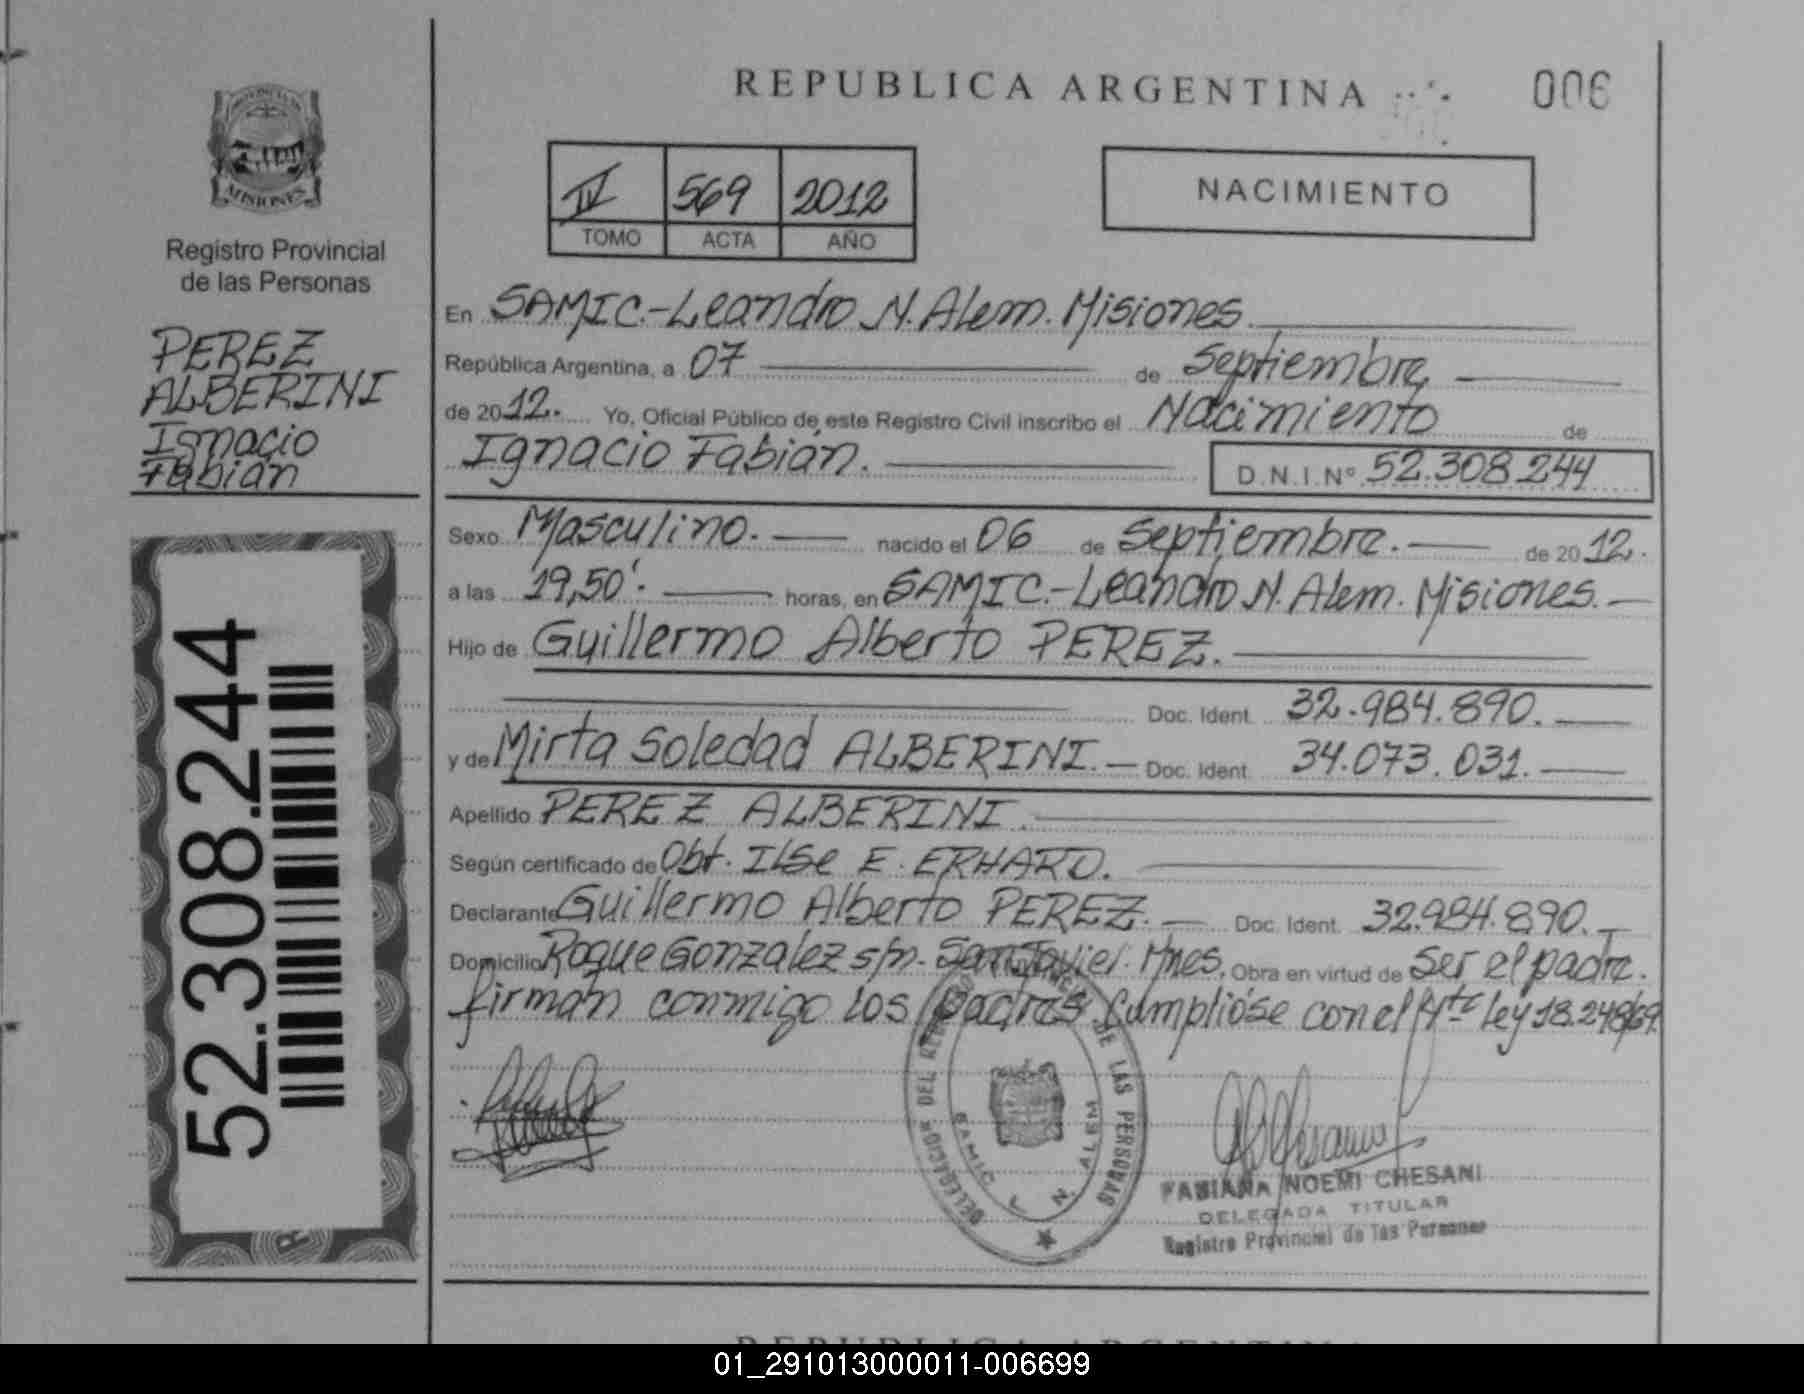 REPUBLICA ARGENTINA
006
PROVINCIA DE
MISIONES
Registro Provincial
de las Personas
PEREZ
ALBERINI
Ignacio
Fabián
52.308.244
IV 569 2012
TOMO ACTA AÑO
NACIMIENTO
En SAMIC.-Leandro N. Alem. Misiones.
República Argentina, a 07 de Septiembre
de 2012. Yo, Oficial Público de este Registro Civil inscribo el Nacimiento de
Ignacio Fabián. D.N.I.Nº 52.308.244
Sexo Masculino. nacido el 06 de Septiembre. de 2012.
a las 19,50'. horas, en SAMIC.-Leandro N. Alem. Misiones.
Hijo de Guillermo Alberto PEREZ.
Doc. Ident. 32.984.890.
y de Mirta Soledad ALBERINI. Doc. Ident. 34.073.031.
Apellido PEREZ ALBERINI.
Según certificado de Obt. Ilse E. ERHARD.
Declarante Guillermo Alberto PEREZ. Doc. Ident. 32.984.890.
Domicilio Roque Gonzalez s/n. San Javier. Mnes. Obra en virtud de ser el padre.
firman conmigo los padres Cumplióse con el Arte Ley 18.248/69.
DELEGACION DEL REGISTRO PROVINCIAL DE LAS PERSONAS
SAMIC L. N. ALEM
FABIANA NOEMI CHESANI
DELEGADA TITULAR
Registro Provincial de las Personas
REPUBLICA ARGENTINA
01_291013000011-006699